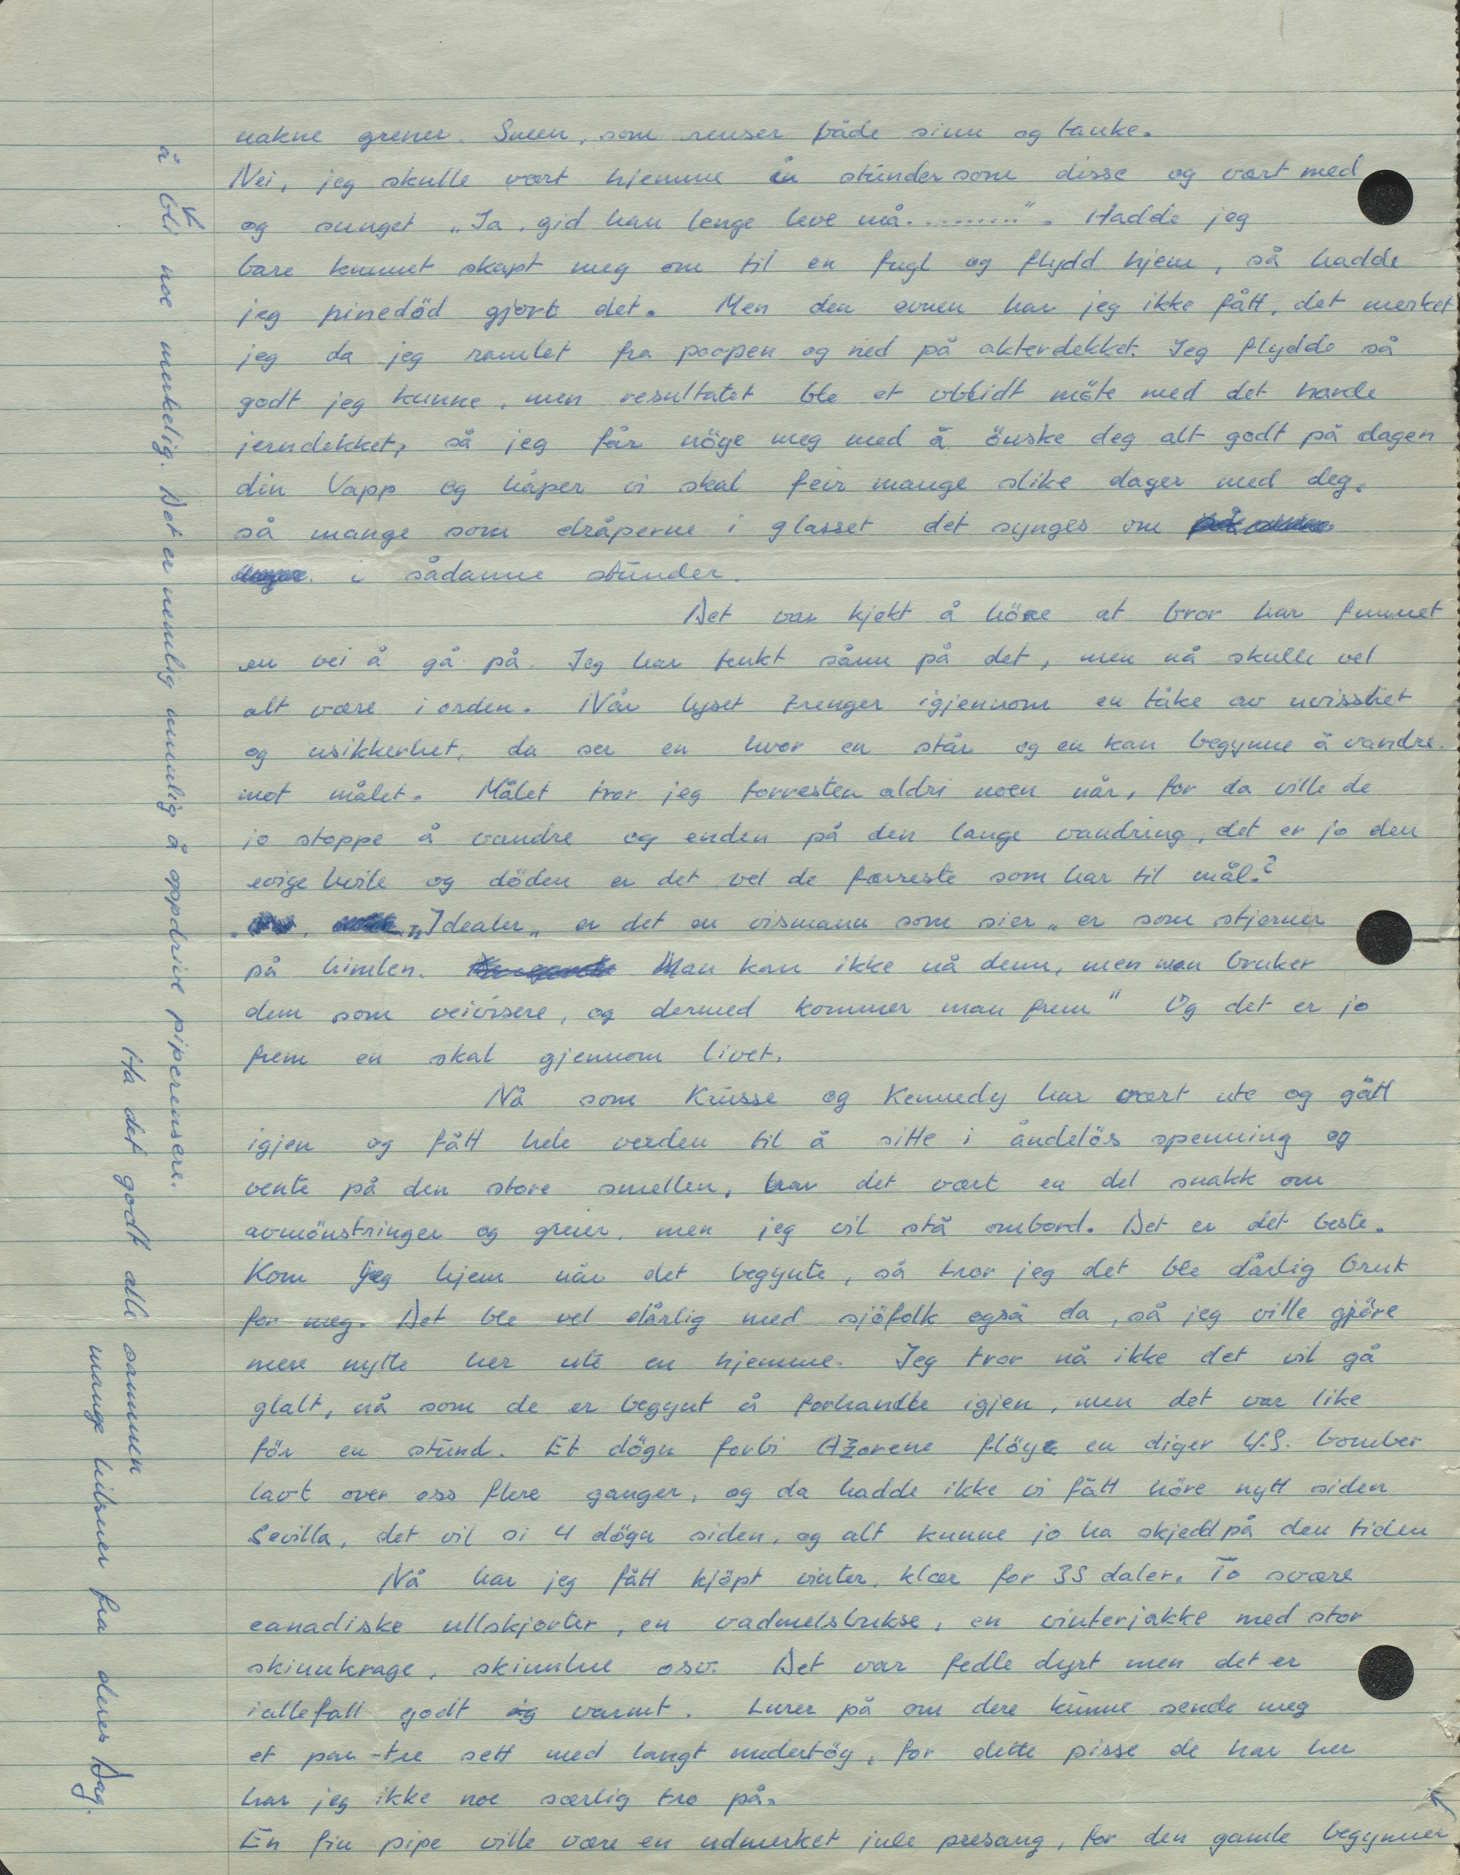 nakne grener. Sneen, som renser både sinn og tanke.
Nei, jeg skulle vært hjemme en stunder som disse og vært med
og sunget „Ja, gid han lenge leve må.........". Hadde jeg
bare kunnet skapt meg om til en fugl og flydd hjem, så hadde
jeg pinedöd gjort det. Men den evnen har jeg ikke fått, det merket
jeg da jeg ramlet fra poopen og ned på akterdekket. Jeg flydde så
godt jeg kunne, men resultatet ble et ublidt möte med det harde
jerndekket, så jeg får nöge meg med å önske deg alt godt på dagen
din Vapp og håper vi skal feir mange slike dager med deg,
så mange som dråperne i glasset det synges om
i sådanne stunder.
Det var kjekt å höre at bror har funnet
en vei å gå på. Jeg har tenkt sånn på det, men nå skulle vel
alt være i orden. Når lyset trenger igjennom en tåke av uvisshet
og usikkerhet, da ser en hvor en står og en kan begynne å vandre
mot målet. Målet tror jeg forresten aldri noen når, for da ville de
jo stoppe å vandre og enden på den lange vandring, det er jo den
evige hvile og döden er det vel de færreste som har til mål?
„Idealer„ er det en vismann som sier „er som stjerner
på himlen. Man kan ikke nå dem, men man bruker
dem som veivisere, og dermed kommer man frem" Og det er jo
frem en skal gjennom livet.
Nå som Krusse og Kennedy har vært ute og gått
igjen og fått hele verden til å sitte i åndelös spenning og
vente på den store smellen, har det vært en del snakk om
avmönstringer og greier, men jeg vil stå ombord. Det er det beste.
Kom jeg hjem når det begynte, så tror jeg det ble dårlig bruk
for meg. Det ble vel dårlig med sjöfolk også da, så jeg ville gjöre
mere nytte her ute en hjemme. Jeg tror nå ikke det vil gå
glalt, nå som de er begynt å forhandle igjen, men det var like
för en stund. Et dögn forbi Azorene flöye en diger U.S. bomber
lavt over oss flere ganger, og da hadde ikke vi fått höre nytt siden
Sevilla, det vil si 4 dögn siden, og alt kunne jo ha skjedd på den tiden
Nå har jeg fått kjöpt vinter klær for 35 daler. To svære
canadiske ullskjorter, en vadmelsbukse, en vinterjakke med stor
skinnkrage, skinnlue osv. Det var fedle dyrt men det er
iallefall godt og varmt. Lurer på om dere kunne sende meg
et par-tre sett med langt undertöy, for dette pisse de har her
har jeg ikke noe særlig tro på.
En fin pipe ville være en udmerket jule presang, for den gamle begynner
å bli noe merkelig. Det er nemlig umulig å oppdrive piperensere.
Ha det godt alle sammen
mange hilsner fra deres Dag.